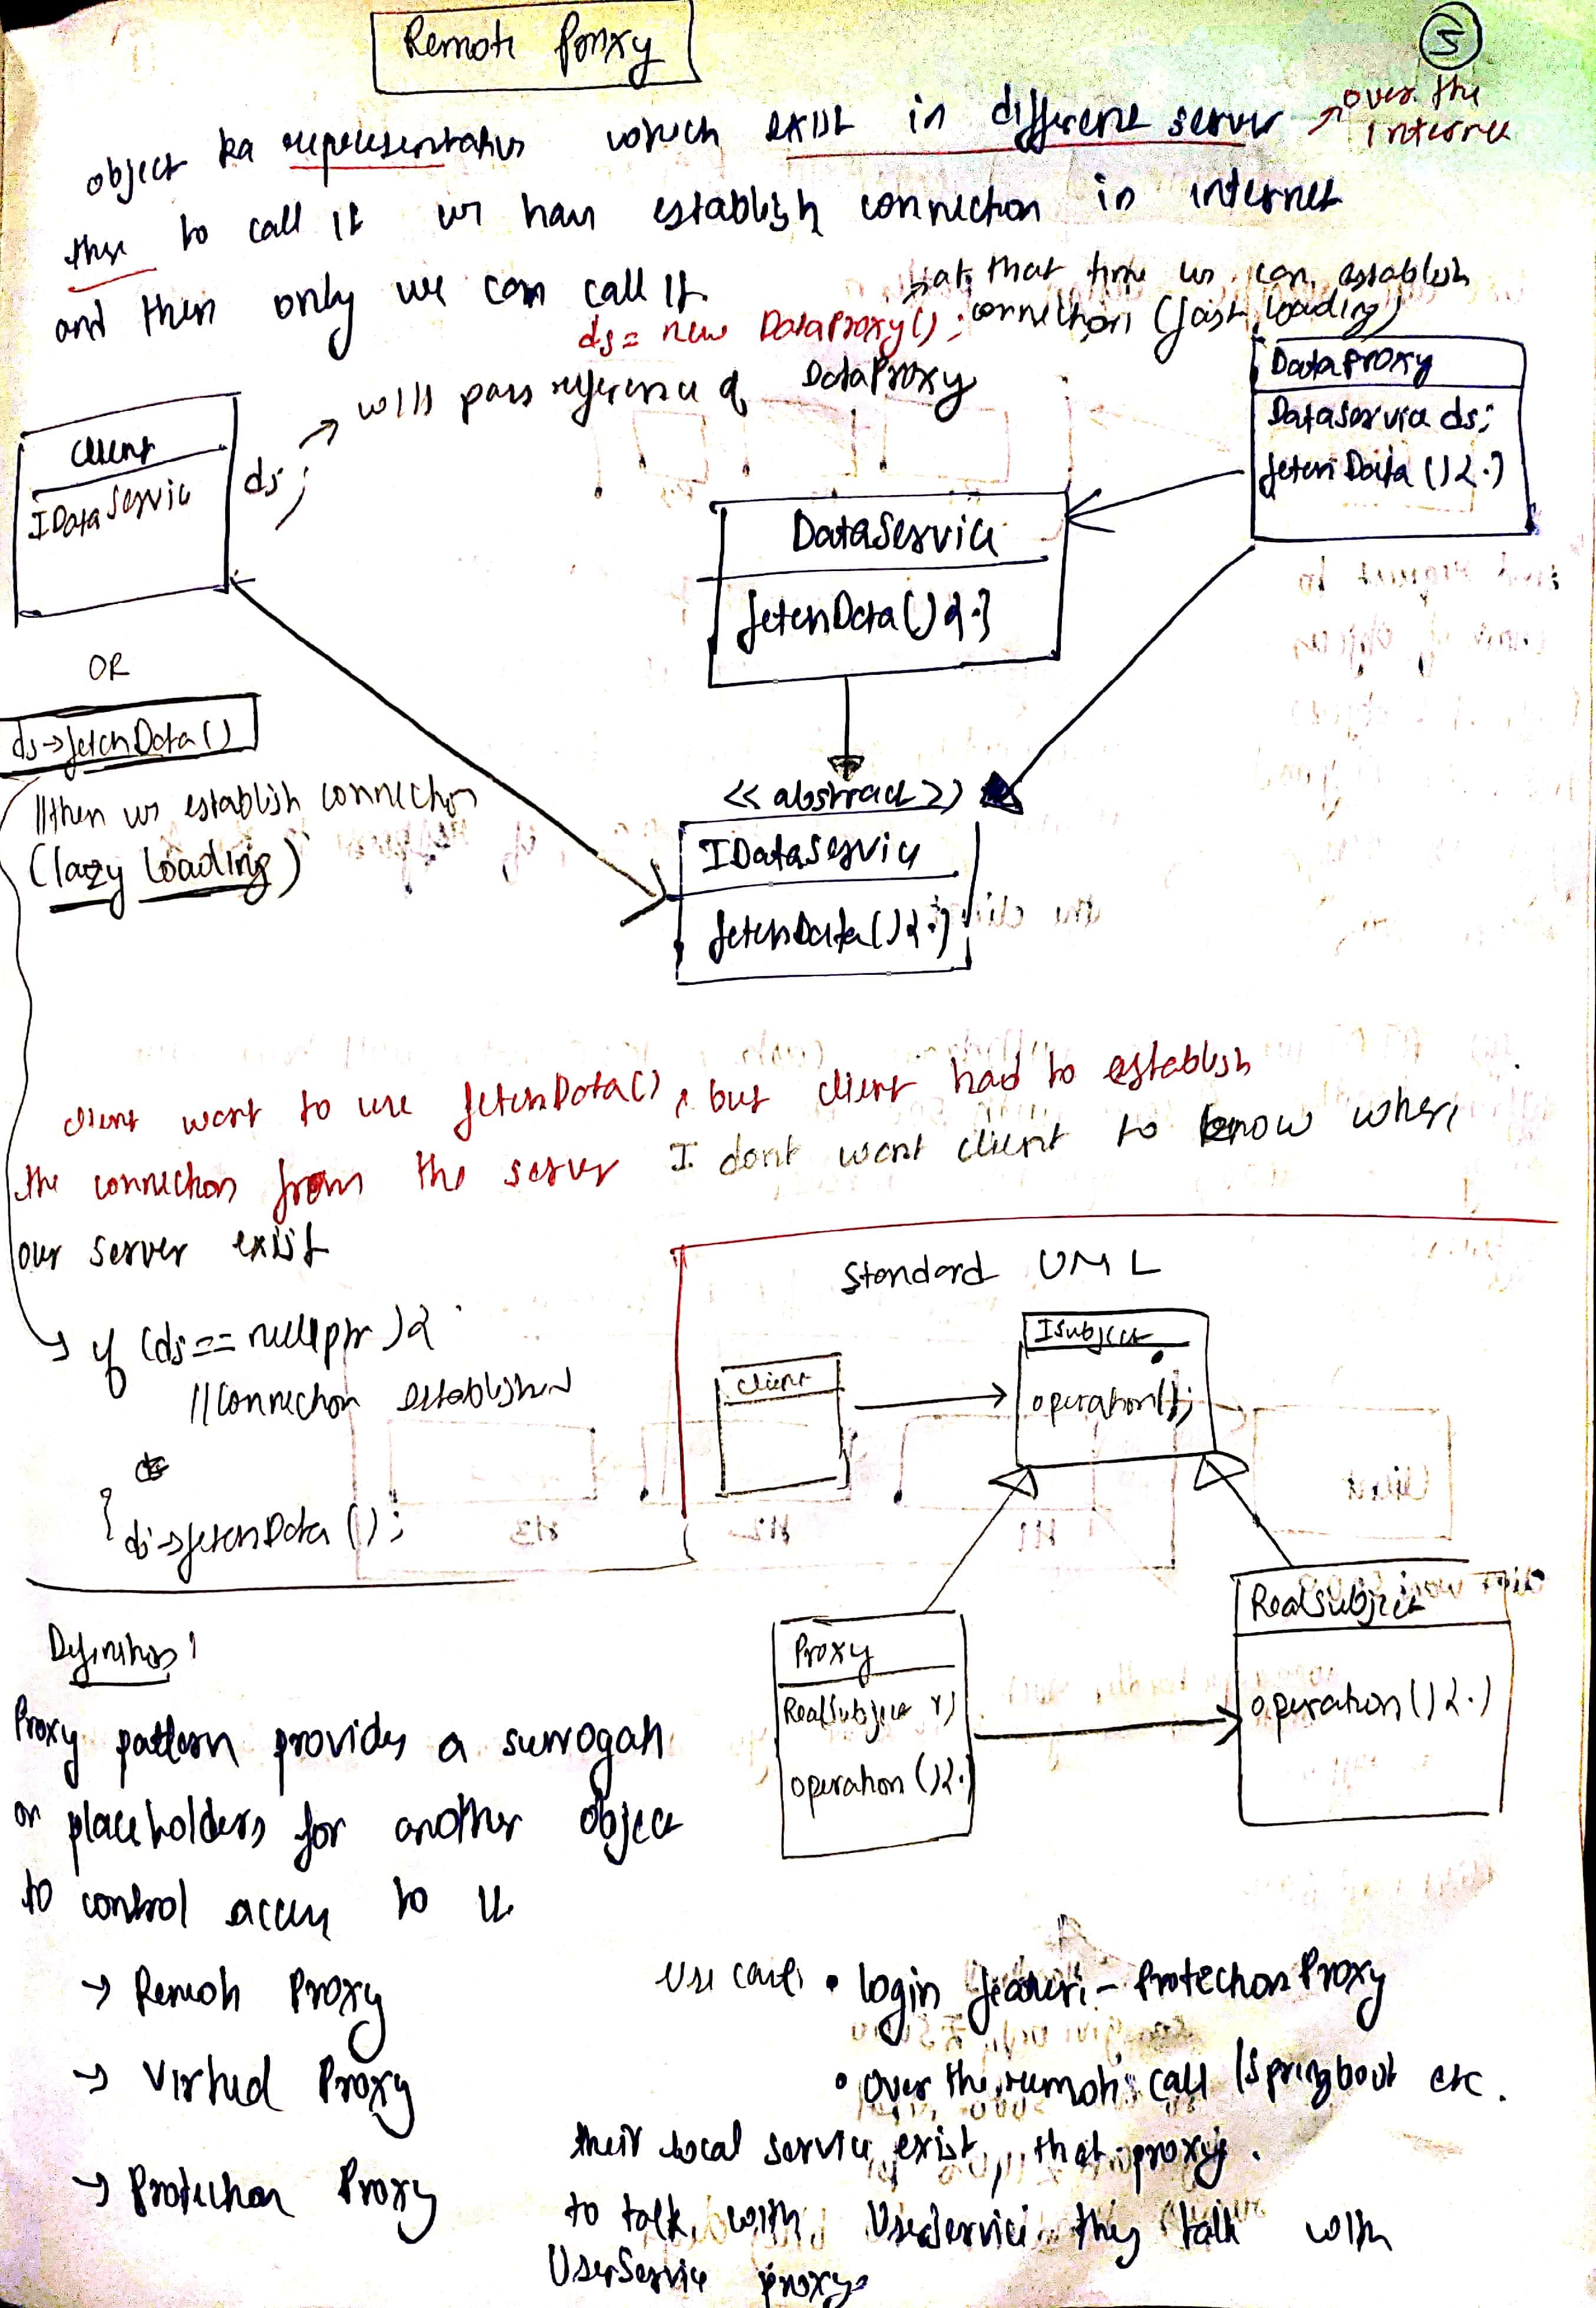 Remote Proxy
5
object ka representative which exist in different server → over the
Internet
thus to call it we have establish connection in internet
and then only we can call it
→ at that time we can establish
connection (fast loading)
ds = new DataProxy();
→ will pass reference of DataProxy
Client
IDataService ds;
DataProxy
DataService ds;
fetchData(){.}
DataService
fetchData(){.}
OR
ds→fetchData()
//then we establish connection
(lazy loading)
<<abstract>>
IDataService
fetchData(){.}
client want to use fetchData(), but client had to establish
the connection from the server I dont want client to know where
our server exist
→ if (ds == nullptr){
//connection established
}
ds→fetchData();
Standard UML
Client
ISubject
operation();
Proxy
RealSubject r;
operation(){.}
RealSubject
operation(){.}
Definition:
Proxy pattern provides a surrogate
or placeholders for another object
to control access to it
→ Remote Proxy
→ Virtual Proxy
→ Protection Proxy
Use cases • login feature - Protection Proxy
• over the remote call (springboot etc.
their local service exist, that proxy.
to talk with UserService they talk with
UserService proxy.